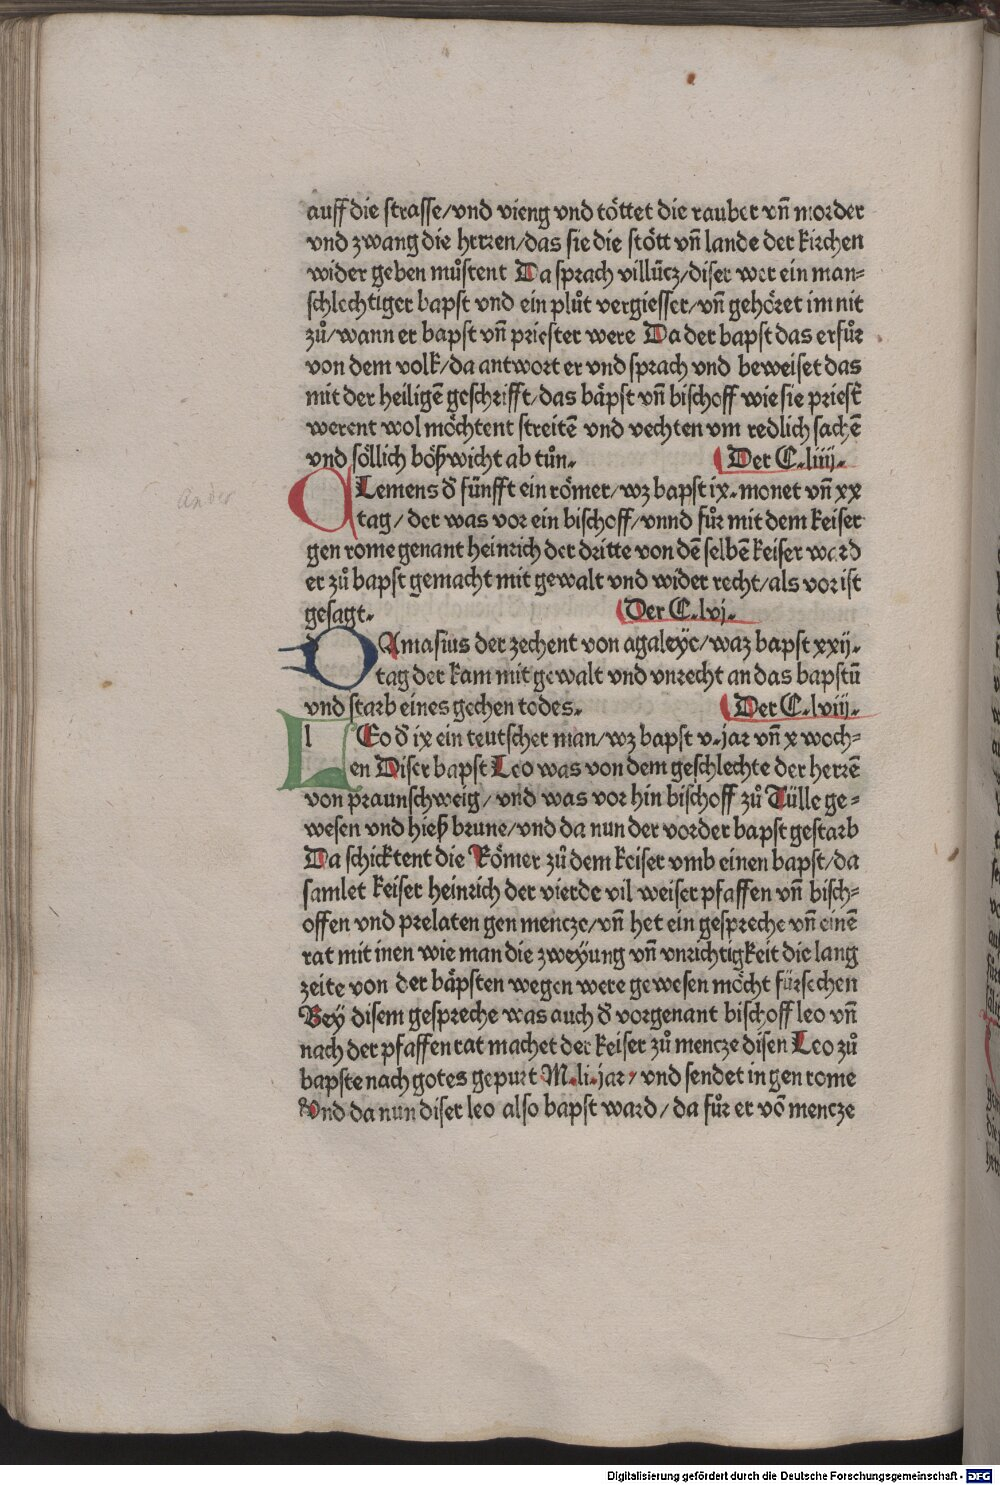 auff die strasse/vnd vieng vnd töttet die rauber vn̄ morder
vnd zwang die herren/das sie die stött vn̄ lande der kirchen
wider geben můstent Da sprach villücz/diser wer ein man=
schlechtiger bapst vnd ein plůt vergiesser/vn̄ gehöret im nit
zů/wann er bapst vn̄ priester were Da der bapst das erfůr
von dem volk/da antwort er vnd sprach vnd beweiset das
mit der heiligē geschrifft/das bäpst vn̄ bischoff wie sie priest̄
werent wol möchtent streitē vnd vechten vm redlich sachē
vnd söllich bößwicht ab tůn. Der C.liiij.
CLemens d̄ fünfft ein römer/wz bapst ix.monet vn̄ xx
tag/ der was vor ein bischoff/vnnd fůr mit dem keiser
gen rome genant heinrich der dritte von dē selbē keiser ward
er zů bapst gemacht mit gewalt vnd wider recht/als vor ist
gesagt. Der C.lvj.
DAmasius der zechent von agaleyc/waz bapst xxij.
tag der kam mit gewalt vnd vnrecht an das bapstū
vnd starb eines gechen todes. Der C.lviij.
LEo d̄ ix ein teutscher man/wz bapst v.jar vn̄ x woch=
en Diser bapst Leo was von dem geschlechte der herrē
von praunschweig/ vnd was vor hin bischoff zů Tülle ge=
wesen vnd hieß brune/vnd da nun der vorder bapst gestarb
Da schicktent die Römer zů dem keiser vmb einen bapst/da
samlet keiser heinrich der vierde vil weiser pfaffen vn̄ bisch=
offen vnd prelaten gen mencze/vn̄ het ein gespreche vn̄ einē
rat mit inen wie man die zweyung vn̄ vnrichtigkeit die lang
zeite von der bäpsten wegen were gewesen möcht fürsechen
Bey disem gespreche was auch d̄ vorgenant bischoff leo vn̄
nach der pfaffen rat machet der keiser zů mencze disen Leo zů
bapste nach gotes gepurt M.li.jar/ vnd sendet in gen rome
Vnd da nun diser leo also bapst ward/ da fůr er vō mencze
ander
Digitalisierung gefördert durch die Deutsche Forschungsgemeinschaft - DFG